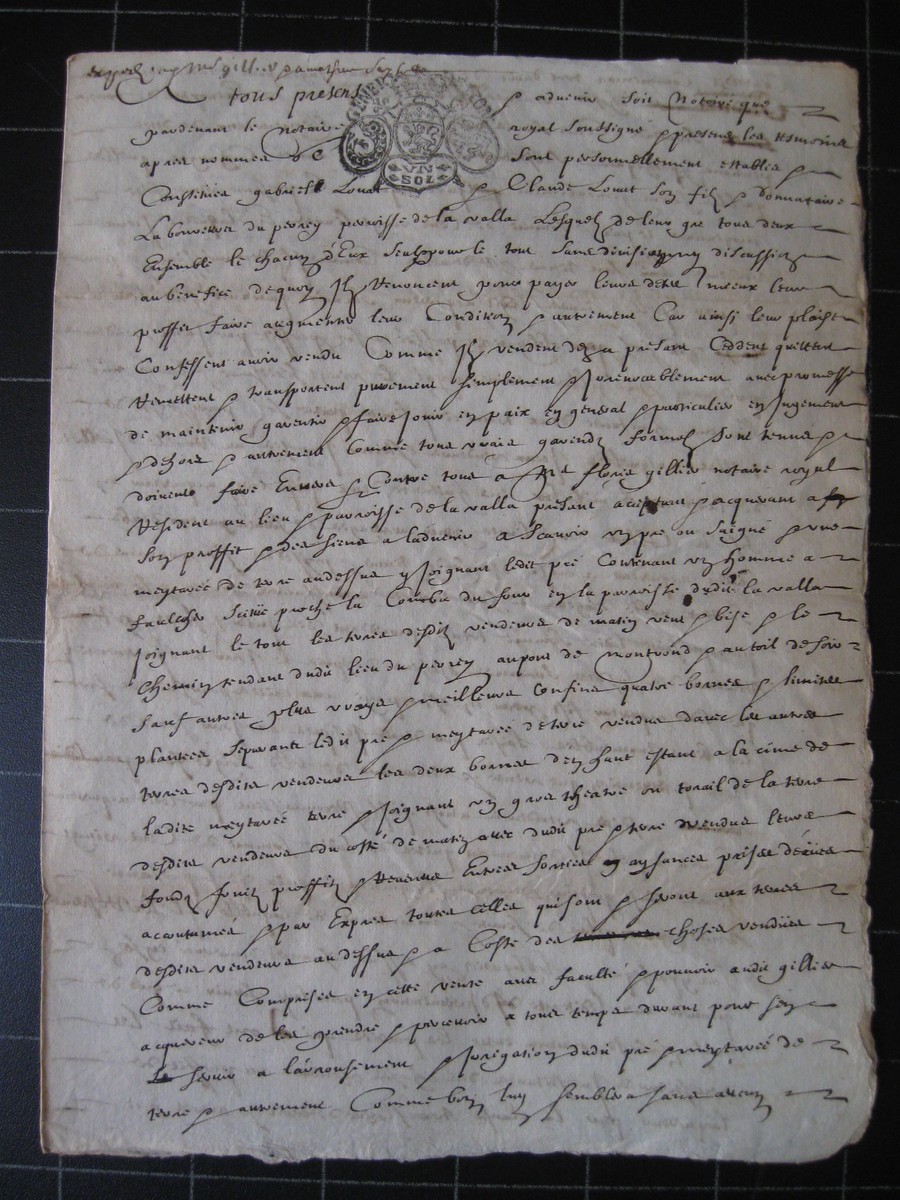 tous presens & aduenir soit Notoire que
pardeuant le Notaire royal soussigné & presens les tesmoins
apres nommes sont personnellement establis
Constitués gabriel Louat & Claude Louat son filz & donnataire
La bouueur du perrey parroisse de la valla Lesquelz de leur gre tous deux
Ensemble le chacun d'Eux seul pour le tout sans diuision ny discussion
au benefice de quoy Ilz Renoncent pour payer leurs debtes mieux leur
proffit faire augmenter leur Condition & autrement Car ainsi leur plaist
Confessent auoir vendu Comme Ilz vendent dez a present Ceddent quittent
Remettent & transportent purement simplement & Irreuocablement auec promesse
de maintenir garentir & faire Jouir en paix en general & particulier en Jugement
& dehors & autrement Comme tous vrais garendz formelz sont tenus &
doiuent faire Enuers & Contre tous a Me floris gillier notaire royal
Resident au lieu & parroisse de la valla present acceptant & acquerant a
son proffit & des siens a laduenir a Scauoir vn pre ou saigne & vne
meytereé de terre audessus y Joignant ledit pré Contenant vn homme a
faulcher Scitué proche la Comba du four en la parroisse dudit la valla
Joignant le tout les terres desditz vendeurs de matin vent & bise & le
Chemin tendant dudit lieu du perrey au pont de montrond & autoit de soir
sauf autres plus vrays & meilleurs confins quatre bornes & limites
plantees separants ledit pré & meytereé de terre vendue dauec les autres
terres desdits vendeurs les deux bornes d'en haut estant a la cime de
ladite meytereé terre & Joignant vn gros theatre ou torail de la terre
desdits vendeurs du costé de matin auec dudit pre & terre vendus leurs
fondz fruitz proffitz & Reuenus Entrees sorties aysances prises derües
acoutumés & par Expres toutes celles qui sont & seront aux terres
desdits vendeurs au dessus & a Costé des choses vendües
Comme Comprises en cette vente auec faculté & pouuoir audit gillier
acquereur de les prendre & perceuoir a tous temps durant pour s'en
seruir a l'arrousement & Irrigation dudit pré & meytereé de
terre & autrement Comme bon luy semblera sans aucun